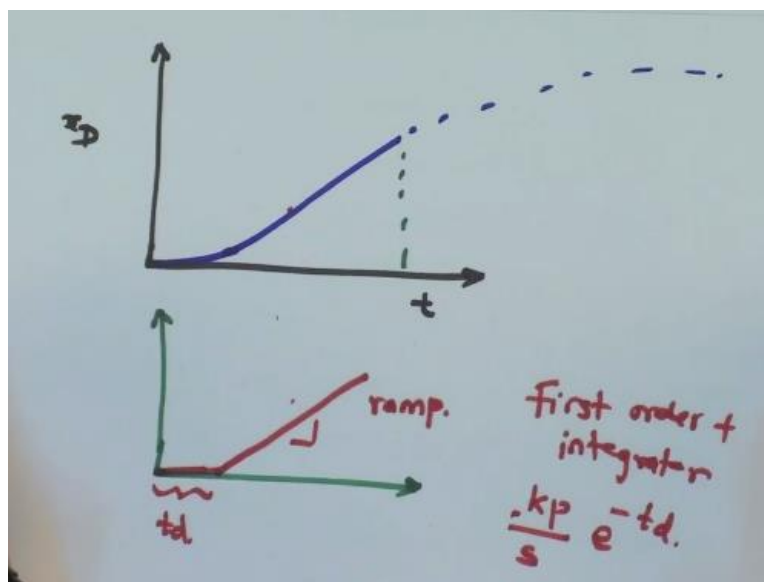 x_D
t
ramp.
td.
First order +
integrator
kp/s e^-td.